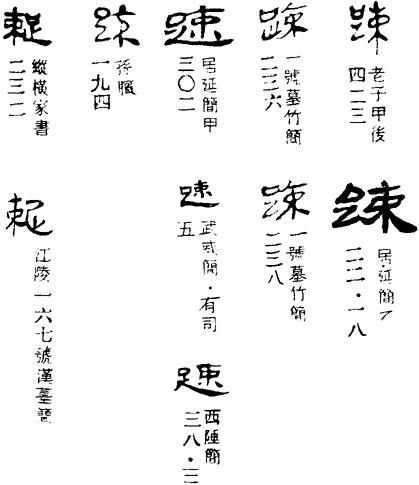 踈
老子甲後
四二三
踈
一號墓竹簡
二三六
踈
居延簡甲
三〇二
踈
孫臏
一九四
踈
縱橫家書
二三二
踈
居延簡乙
二二·一八
踈
一號墓竹簡
二三八
踈
武威簡·有司
五
踈
江陵一六七號漢墓簡
踈
西陲簡
三八·